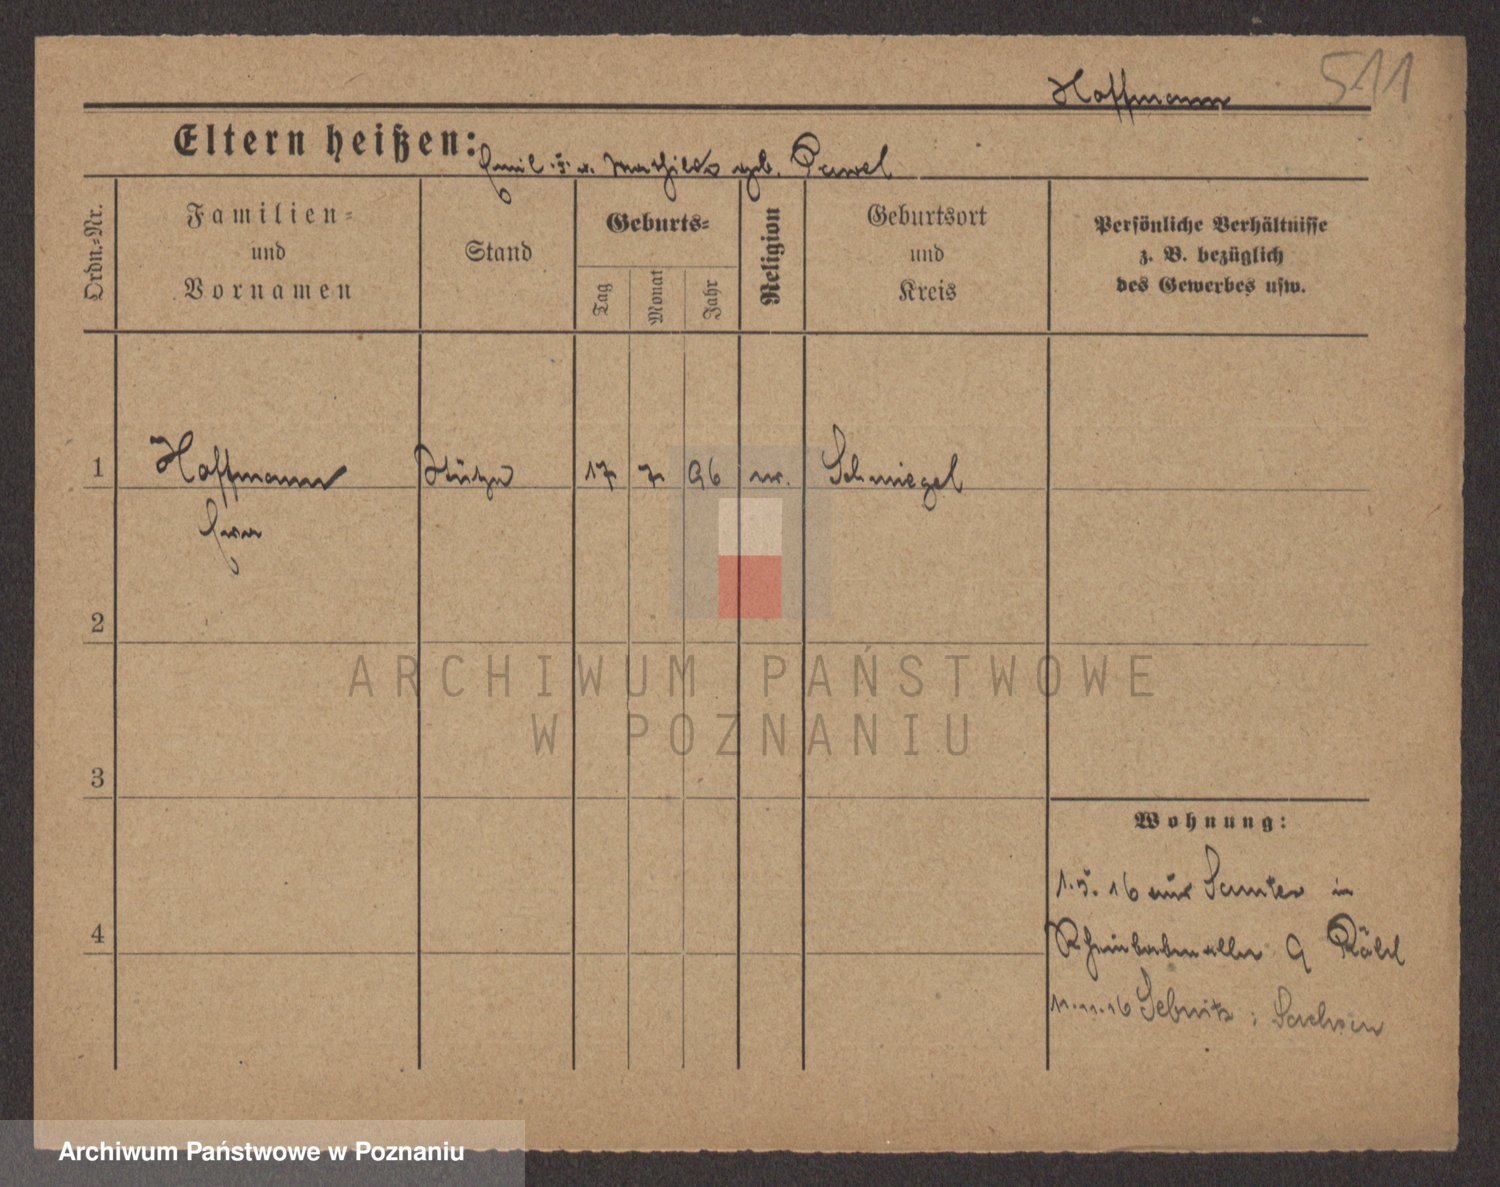 Hoffmann 511
Eltern heißen: Emil u. Mathilde geb. Pawel
Ordn.-Nr.
Familien-
und
Vornamen
Stand
Geburts-
Tag
Monat
Jahr
Religion
Geburtsort
und
Kreis
Persönliche Verhältnisse
z. B. bezüglich
des Gewerbes usw.
1 Hoffmann Stütze 17 7 96 Schmiegel
Eva
2
3
4
Wohnung:
1.5.16 aus Samter in
Rheinbabenallee 9
11.11.16 Sebnitz i Sachsen
ARCHIWUM PAŃSTWOWE
W POZNANIU
Archiwum Państwowe w Poznaniu